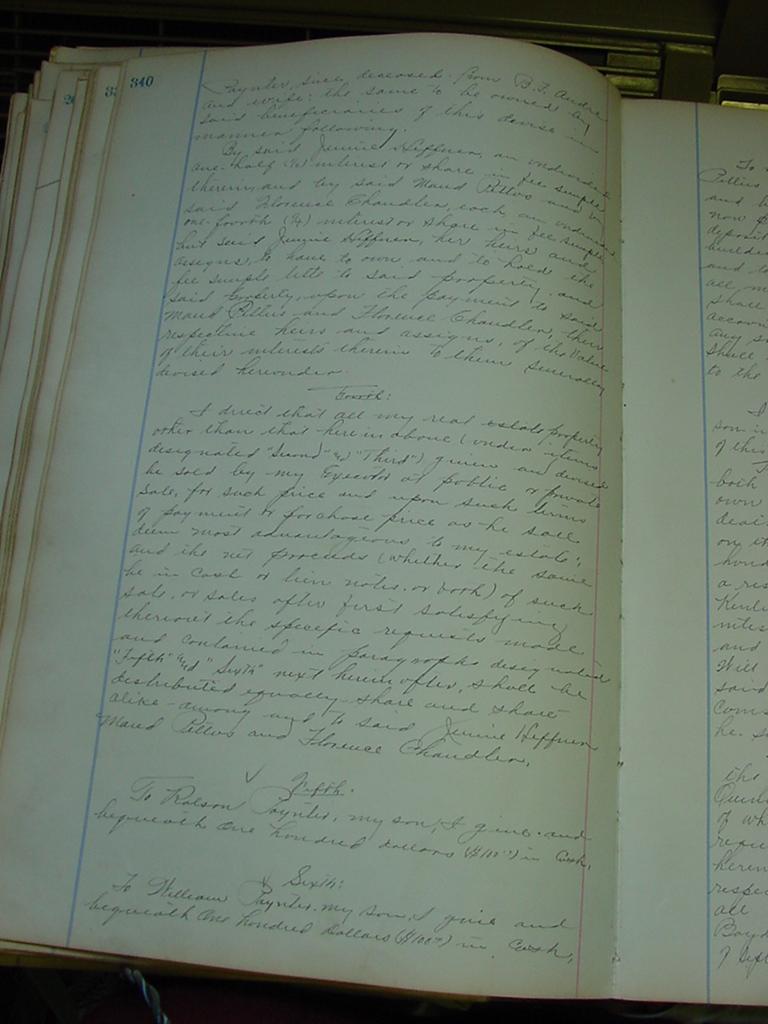 340
Paynter, since, deceased. from B. F. Andre
and wife; the same to be owned by
said beneficiaries of this devise in
manner following.
By said Jennie Heffner, an undivided
one-half (½) interest or share in fee simple
therein, and by said Maud Pettus and
said Florence Chandler, each, an undivided
one-fourth (¼) interest or share in fee simple
but said Jennie Heffner, her heirs and
assigns, to have to own and to hold the
fee simple title to said property, and
said property, upon the payment to said
Maud Pettus and Florence Chandler, their
respective heirs and assigns, of the value
of their interests therein to them severally
devised hereunder.
Fourth:
I direct that all my real estate property
other than that herein above (under items
designated "Second" and "Third") given and devised
be sold by my Executor at public or private
sale, for such price and upon such terms
of payment or purchase price as he shall
deem most advantageous to my estate;
and the net proceeds (whether the same
be in cash or lien notes, or both) of such
sale, or sales after first satisfying
thereout the specific requests made
and contained in paragraphs designated
"Fifth" and "Sixth" next herein after, shall be
distributed equally share and share
alike among and to said Jennie Heffner
Maud Pettus and Florence Chandler.
Fifth.
To Rolson Paynter, my son, I give and
bequeath One hundred dollars ($100⁰⁰) in Cash.
Sixth:
To William Paynter, my son, I give and
bequeath One hundred dollars ($100⁰⁰) in Cash,
To
Pettus
and
now
deposit
and to
all
shall
accoun
any
shall
to the
I
son in
of this
both
own
on th
a res
and
Will
said
Com
he
the
of wh
herein
respec
all
Boyd